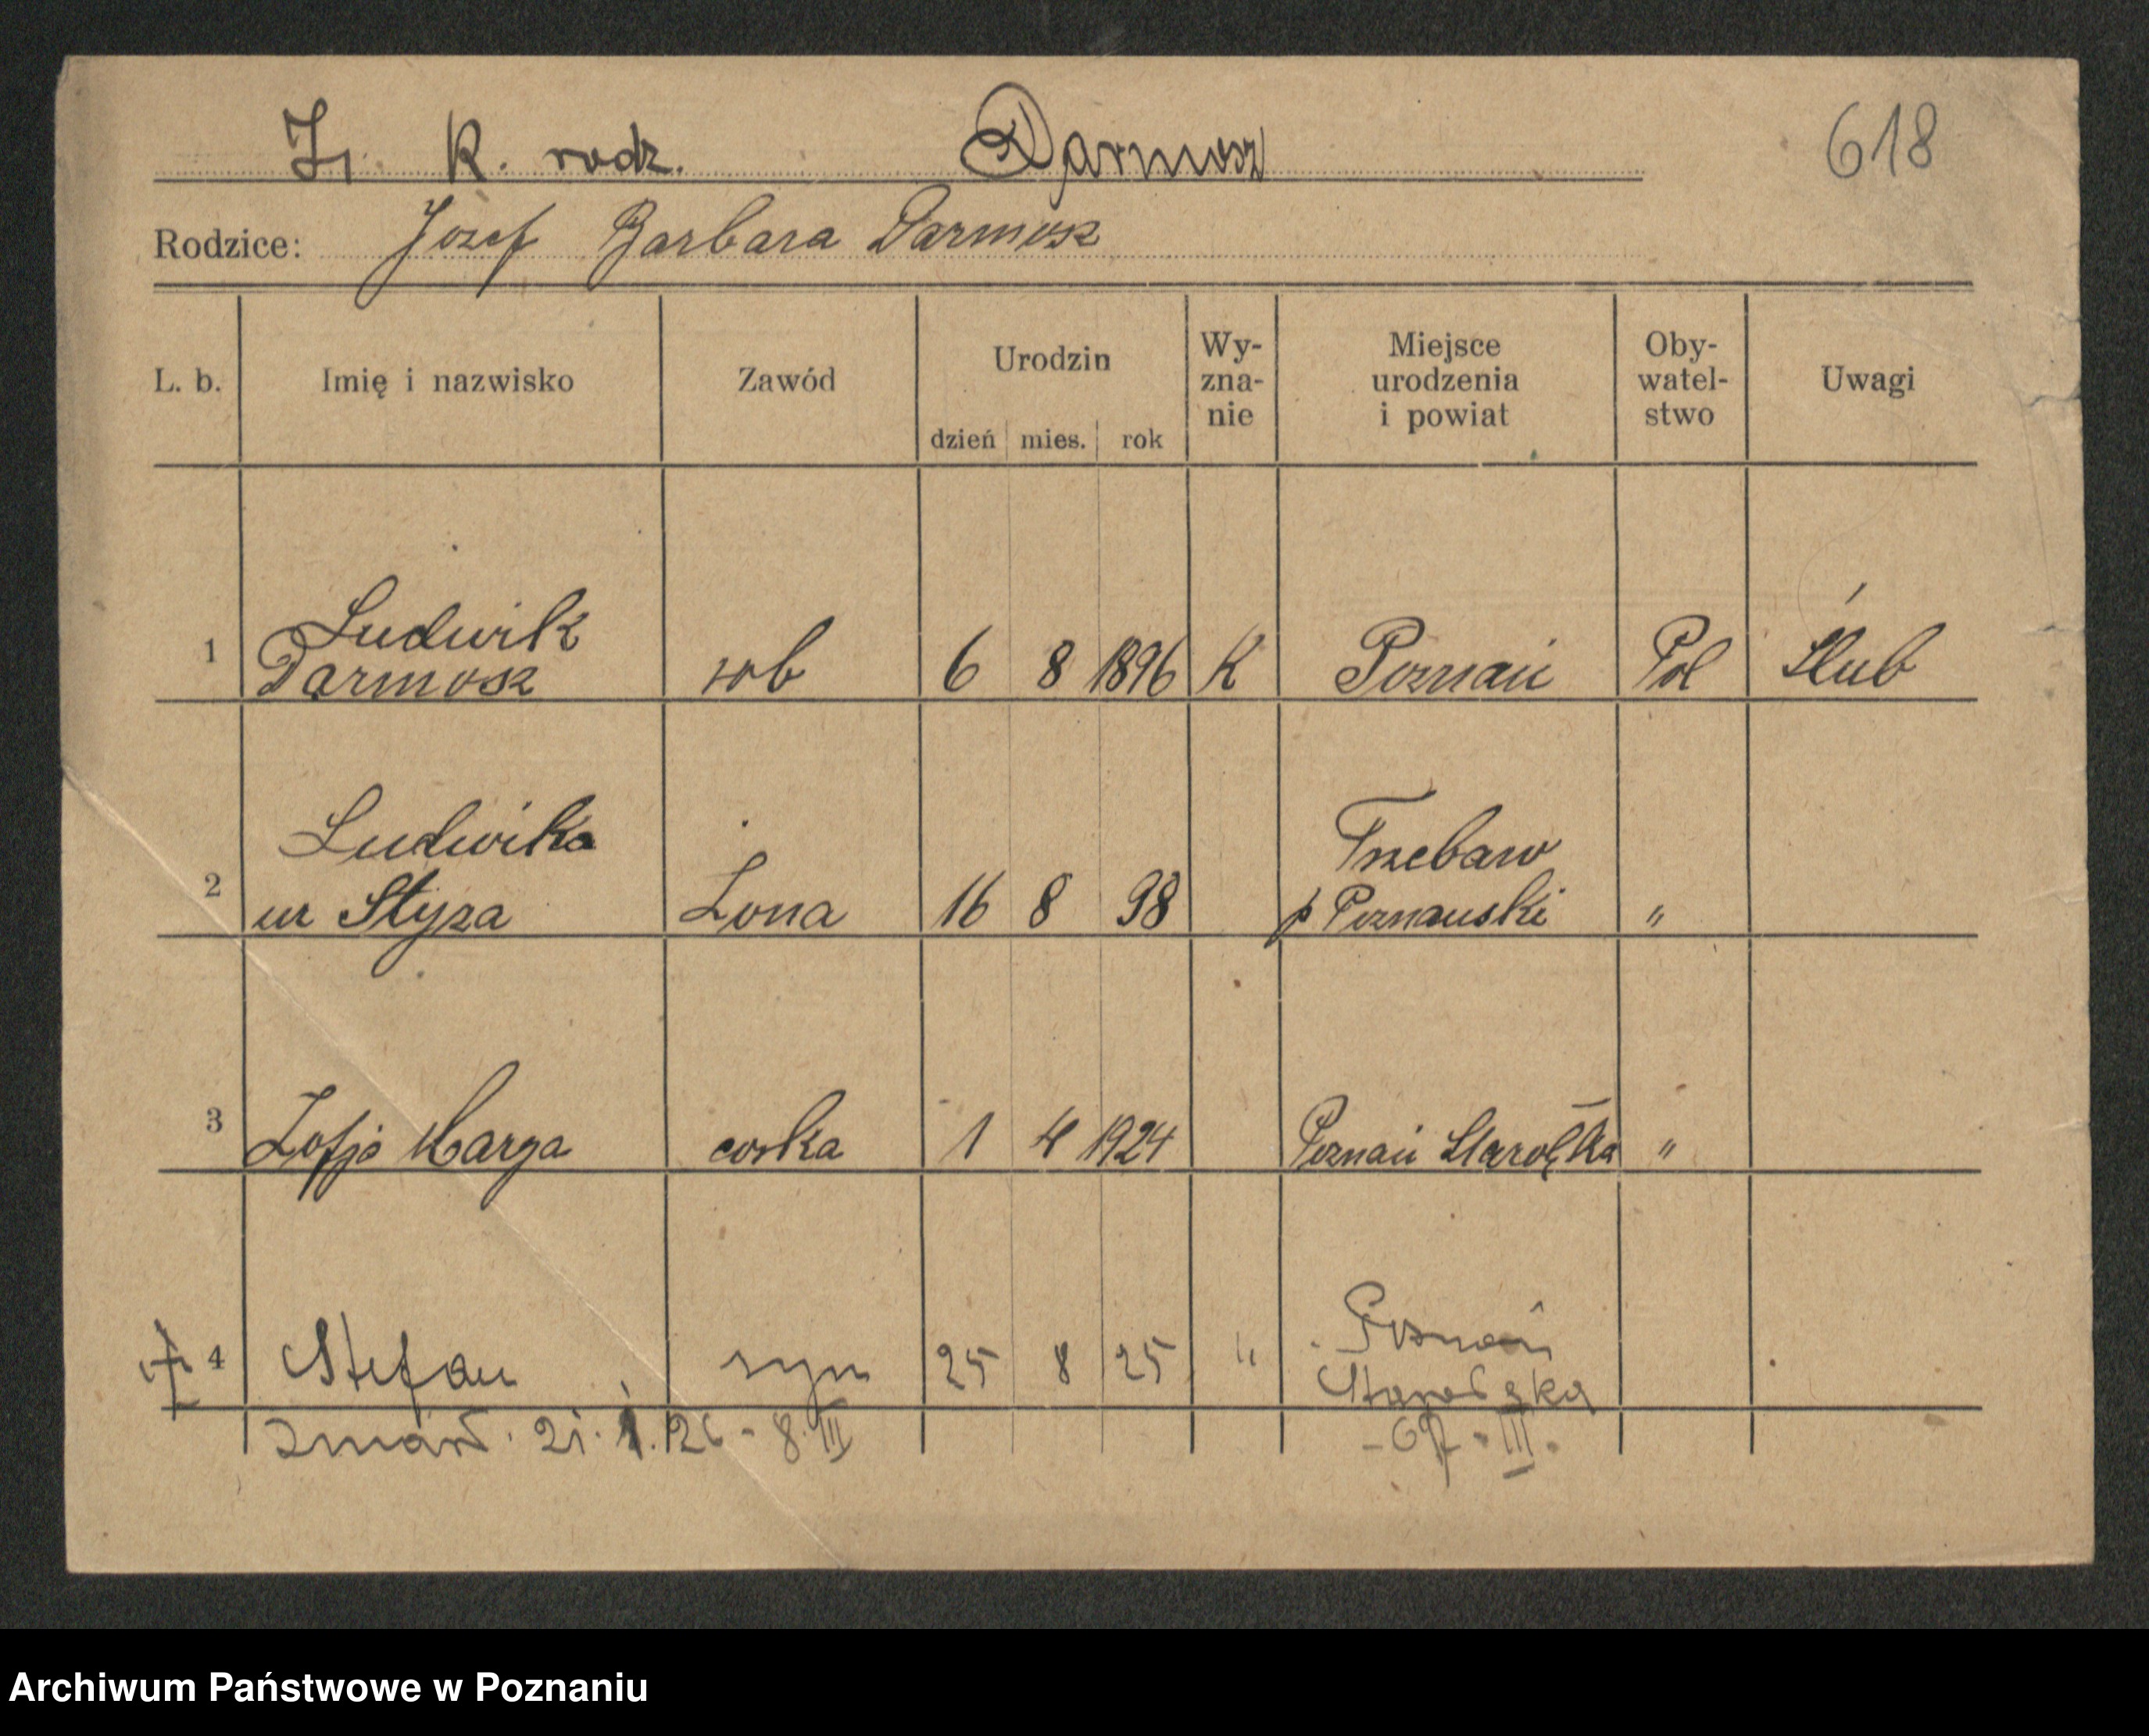 K. rodz. Darmosz 618
Rodzice: Jozef Barbara Darmosz
L. b. Imię i nazwisko Zawód Urodzin Wy- Miejsce Oby- Uwagi
zna- urodzenia watel-
dzień mies. rok nie i powiat stwo
Ludwik
1 Darmosz rob 6 8 1896 K Poznań Pol Ślub
Ludwika Trzebaw
2 ur Styza Żona 16 8 98 p Poznanski "
3 Zofja Marya corka 1 4 1924 Poznań Starołęka "
4 Stefan syn 25 8 25 " Poznań
Starołęka
zmarł. 21. 1. 26 - 8. III
Archiwum Państwowe w Poznaniu